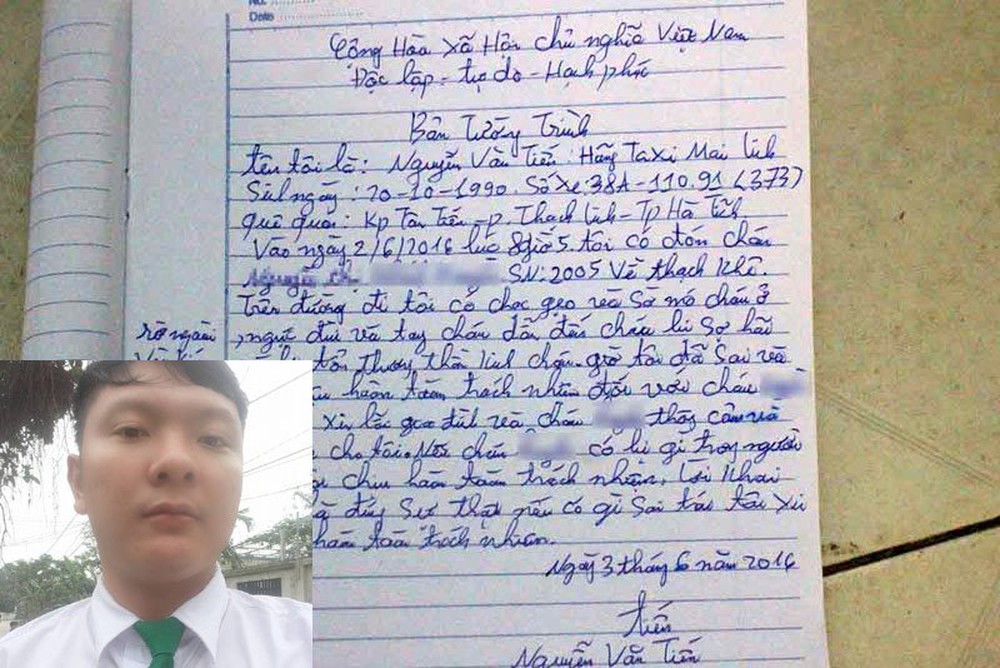 No:
Date
Cộng Hòa Xã Hội chủ nghĩa Việt Nam
Độc lập - tự do - Hạnh phúc
Bản Tường Trình
tên tôi là: Nguyễn Văn Tiến: Hãng Taxi Mai linh
Sinh ngày: 20-10-1990. Số xe: 38A-110.91 (373)
quê quán: Kp Tân Tiến - p. Thạch linh - Tp Hà Tĩnh.
Vào ngày 2/6/2016 lúc 8giờ5. tôi có đón cháu
Nguyễn SN: 2005 Về thạch Khê.
Trên đường đi tôi có chọc gẹo và Sờ mó cháu ở
rờ ngoài
ngực đùi và tay cháu dẫn đến cháu bị Sợ hãi
tổn thương thần kinh cháu. giờ tôi đã Sai và
hoàn toàn trách nhiệm đối với cháu
xin lỗi gia đình và cháu thông cảm và
cho tôi. Nếu cháu có bị gì trong người
chịu hoàn toàn trách nhiệm, lời khai
là đúng Sự thật nếu có gì Sai trái tôi xin
hoàn toàn trách nhiệm.
Ngày 3 tháng 6 năm 2016
tiến
Nguyễn Văn Tiến